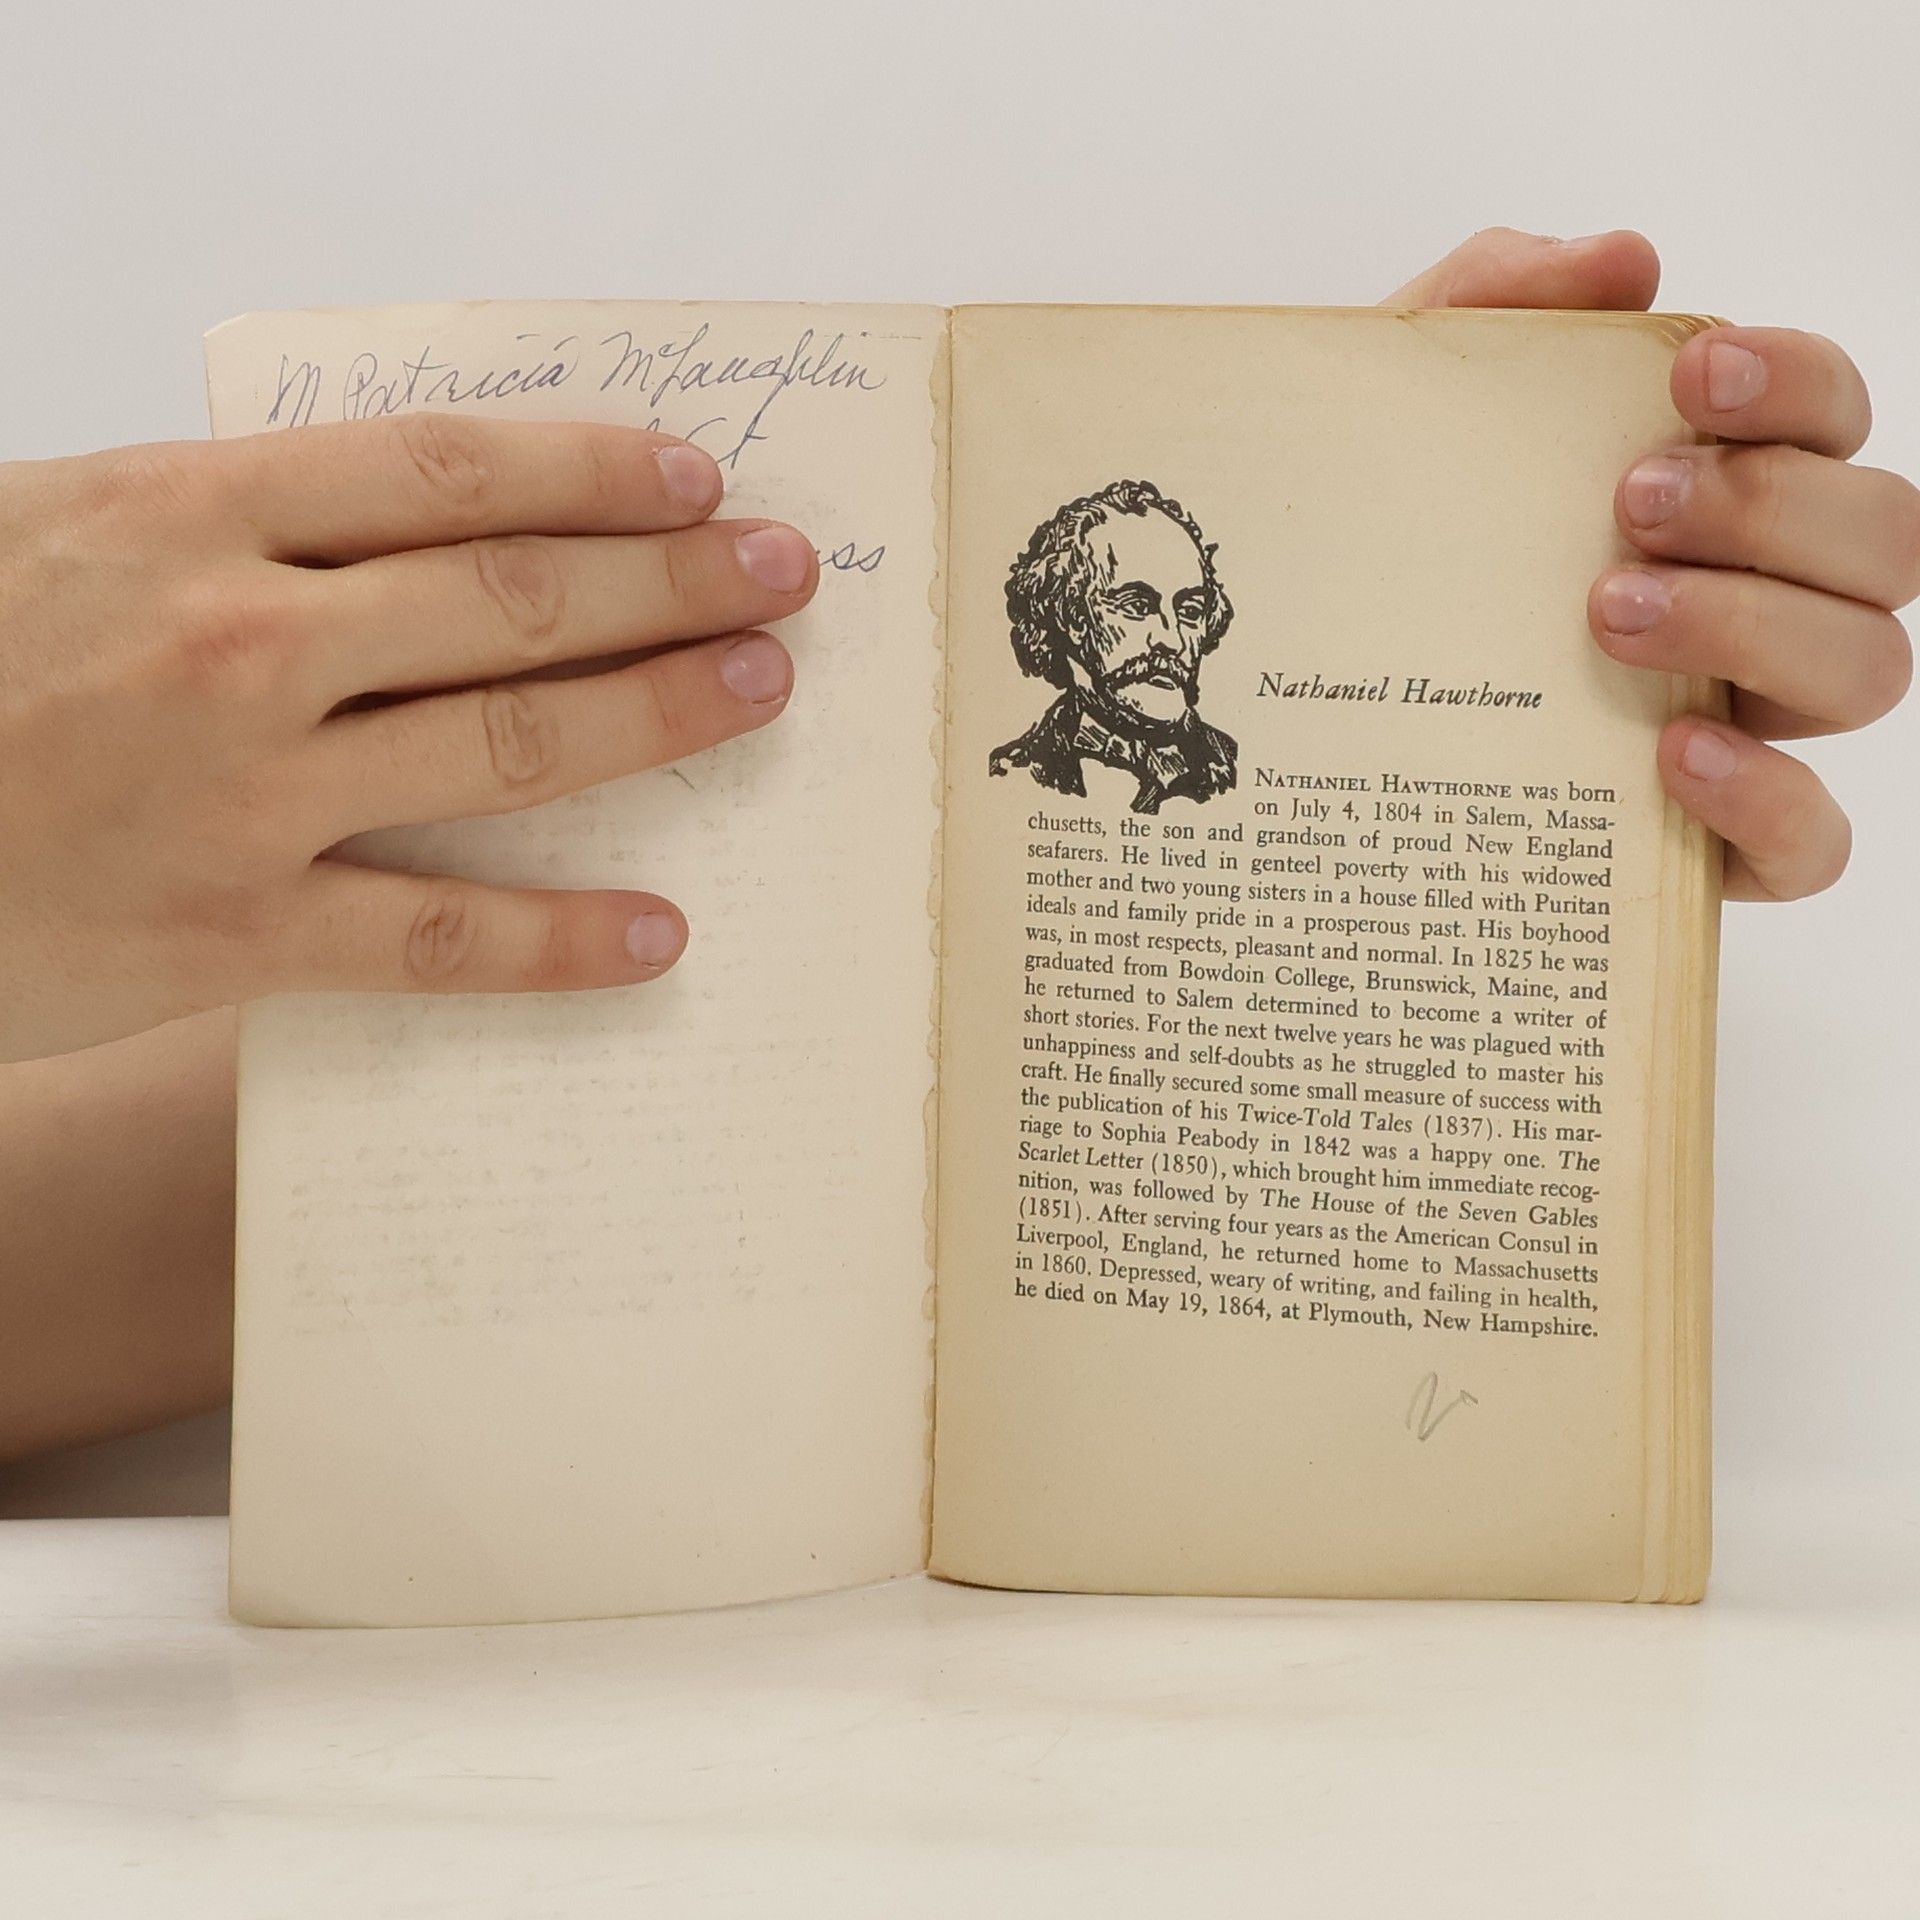 M Patricia McLaughlin
Nathaniel Hawthorne
NATHANIEL HAWTHORNE was born
on July 4, 1804 in Salem, Massa-
chusetts, the son and grandson of proud New England
seafarers. He lived in genteel poverty with his widowed
mother and two young sisters in a house filled with Puritan
ideals and family pride in a prosperous past. His boyhood
was, in most respects, pleasant and normal. In 1825 he was
graduated from Bowdoin College, Brunswick, Maine, and
he returned to Salem determined to become a writer of
short stories. For the next twelve years he was plagued with
unhappiness and self-doubts as he struggled to master his
craft. He finally secured some small measure of success with
the publication of his Twice-Told Tales (1837). His mar-
riage to Sophia Peabody in 1842 was a happy one. The
Scarlet Letter (1850), which brought him immediate recog-
nition, was followed by The House of the Seven Gables
(1851). After serving four years as the American Consul in
Liverpool, England, he returned home to Massachusetts
in 1860. Depressed, weary of writing, and failing in health,
he died on May 19, 1864, at Plymouth, New Hampshire.